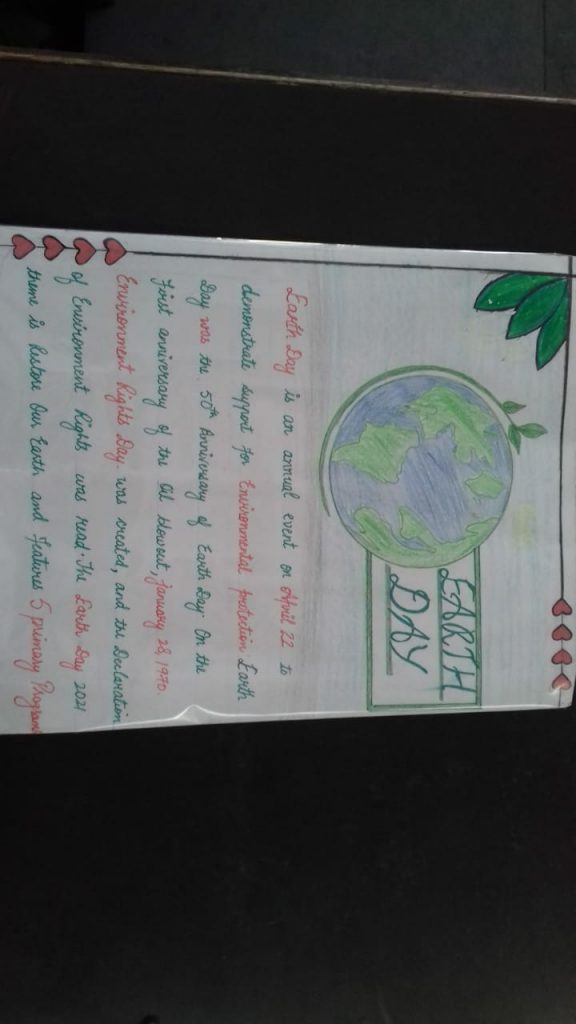 EARTH
DAY
Earth Day is an annual event on April 22 to
demonstrate support for Environmental protection Earth
Day was the 50th Anniversary of Earth Day. On the
First anniversary of the Oil blowout, January 28, 1970.
Environment Rights Day was created, and the Declaration
of Environment Rights was read. The Earth Day 2021
theme is Restore Our Earth and features 5 primary Program